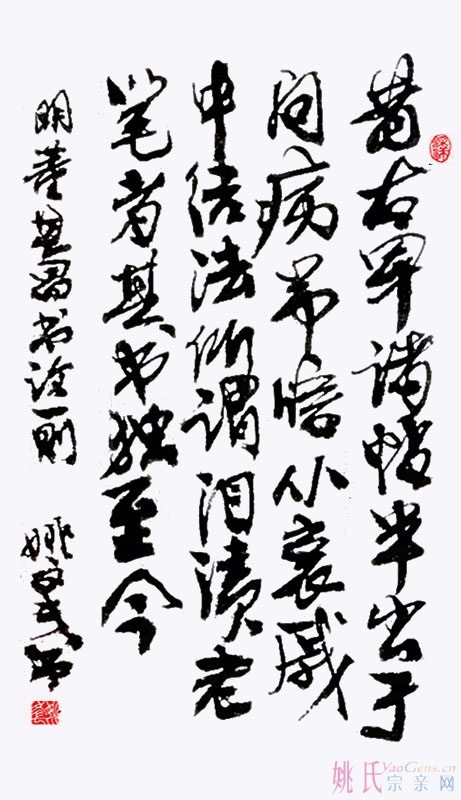 昔右军诸帖半出于
问病吊唁从哀戚
中结法所谓泪渍老
笔者其书独至今
明董其昌书论一则
姚
姚氏宗亲网
YaoGens.cn